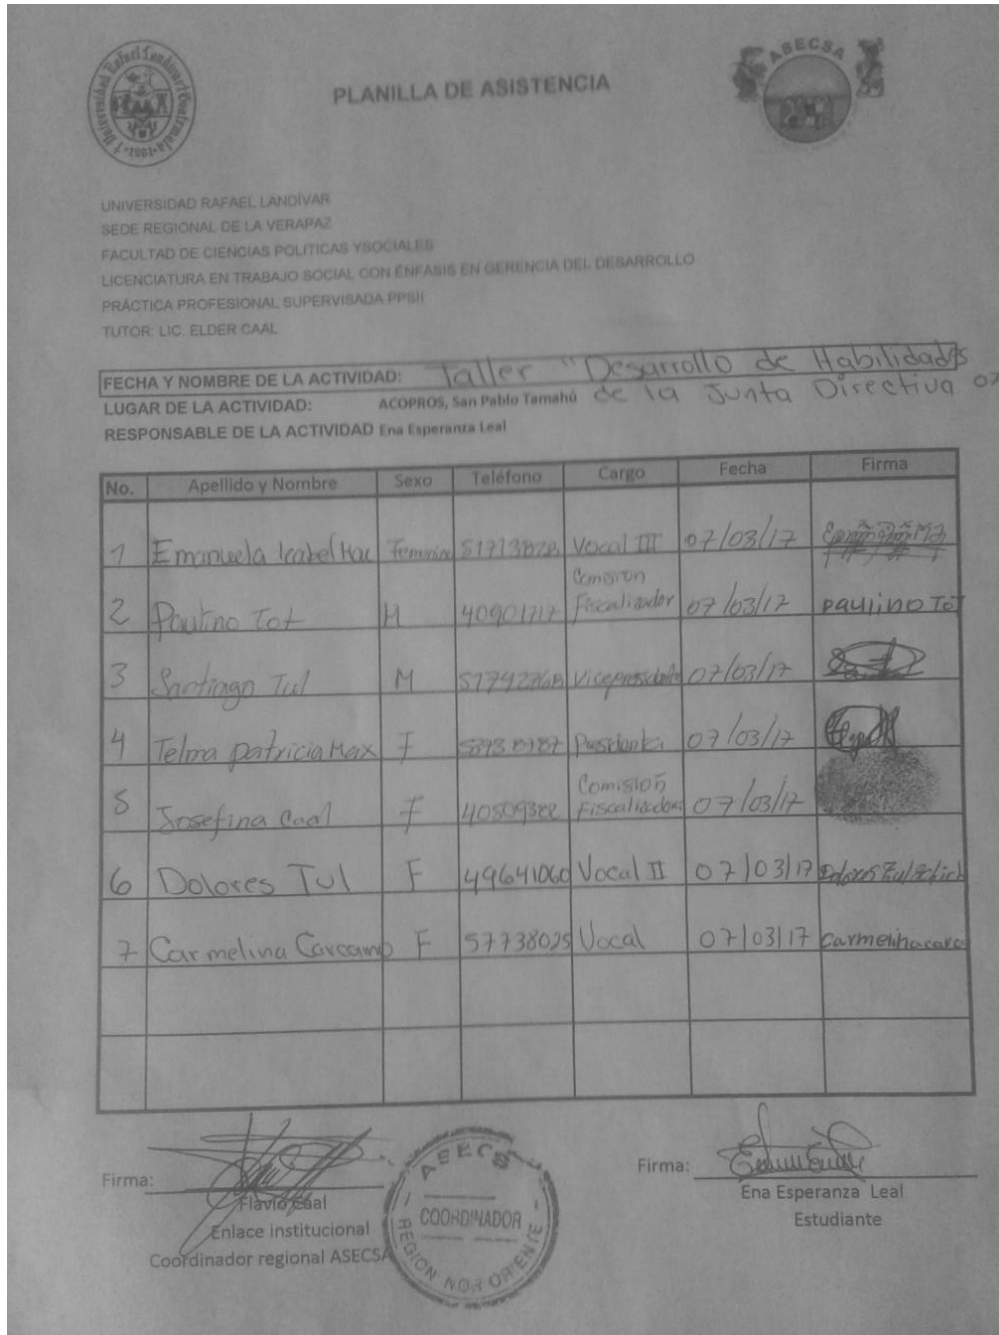 Universidad Rafael Landívar Guatemala
1961
PLANILLA DE ASISTENCIA
ASECSA
UNIVERSIDAD RAFAEL LANDÍVAR
SEDE REGIONAL DE LA VERAPAZ
FACULTAD DE CIENCIAS POLITICAS YSOCIALES
LICENCIATURA EN TRABAJO SOCIAL CON ÉNFASIS EN GERENCIA DEL DESARROLLO
PRÁCTICA PROFESIONAL SUPERVISADA PPSII
TUTOR: LIC. ELDER CAAL
FECHA Y NOMBRE DE LA ACTIVIDAD: Taller "Desarrollo de Habilidades
LUGAR DE LA ACTIVIDAD: ACOPROS, San Pablo Tamahú de la Junta Directiva
RESPONSABLE DE LA ACTIVIDAD Ena Esperanza Leal
No. Apellido y Nombre Sexo Teléfono Cargo Fecha Firma
1 Emanuela Isabel Vocal III 07/03/17
2 Paulino Tot M 40901717 Comision Fiscalizador 07/03/17 Paulino Tot
3 Santiago Tul M Vicepresidente 07/03/17
4 Telma patricia Max F 07/03/17
5 Josefina Caal F Comisión Fiscalizadora 07/03/17
6 Dolores Tul F 49641060 Vocal II 07/03/17 Dolores
7 Carmelina Carcamo F 57738025 Vocal 07/03/17 Carmelina
Firma:
Flavio Caal
Enlace institucional
Coordinador regional ASECSA
ASECSA
COORDINADOR
REGION NOR ORIENTE
Firma:
Ena Esperanza Leal
Estudiante